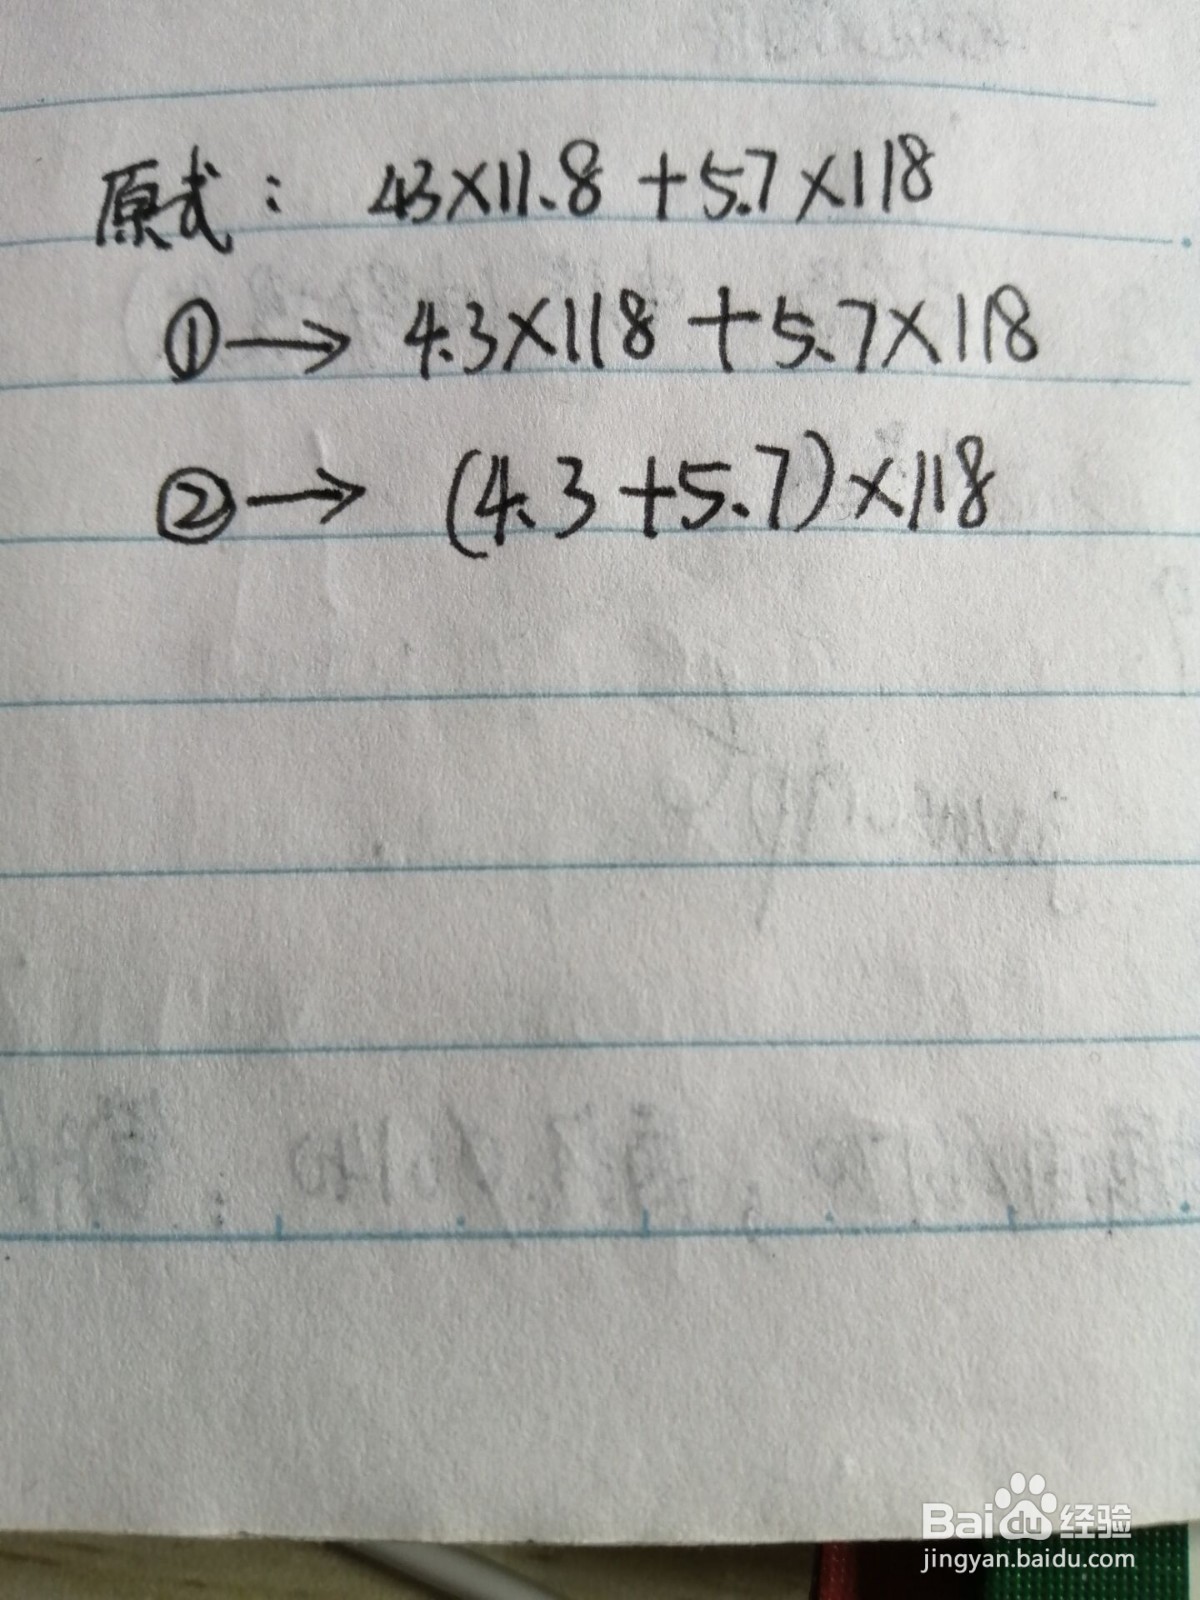 原式： 43×11.8+5.7×118
①→ 4.3×118+5.7×118
②→ (4.3+5.7)×118
Baidu 经验
jingyan.baidu.com